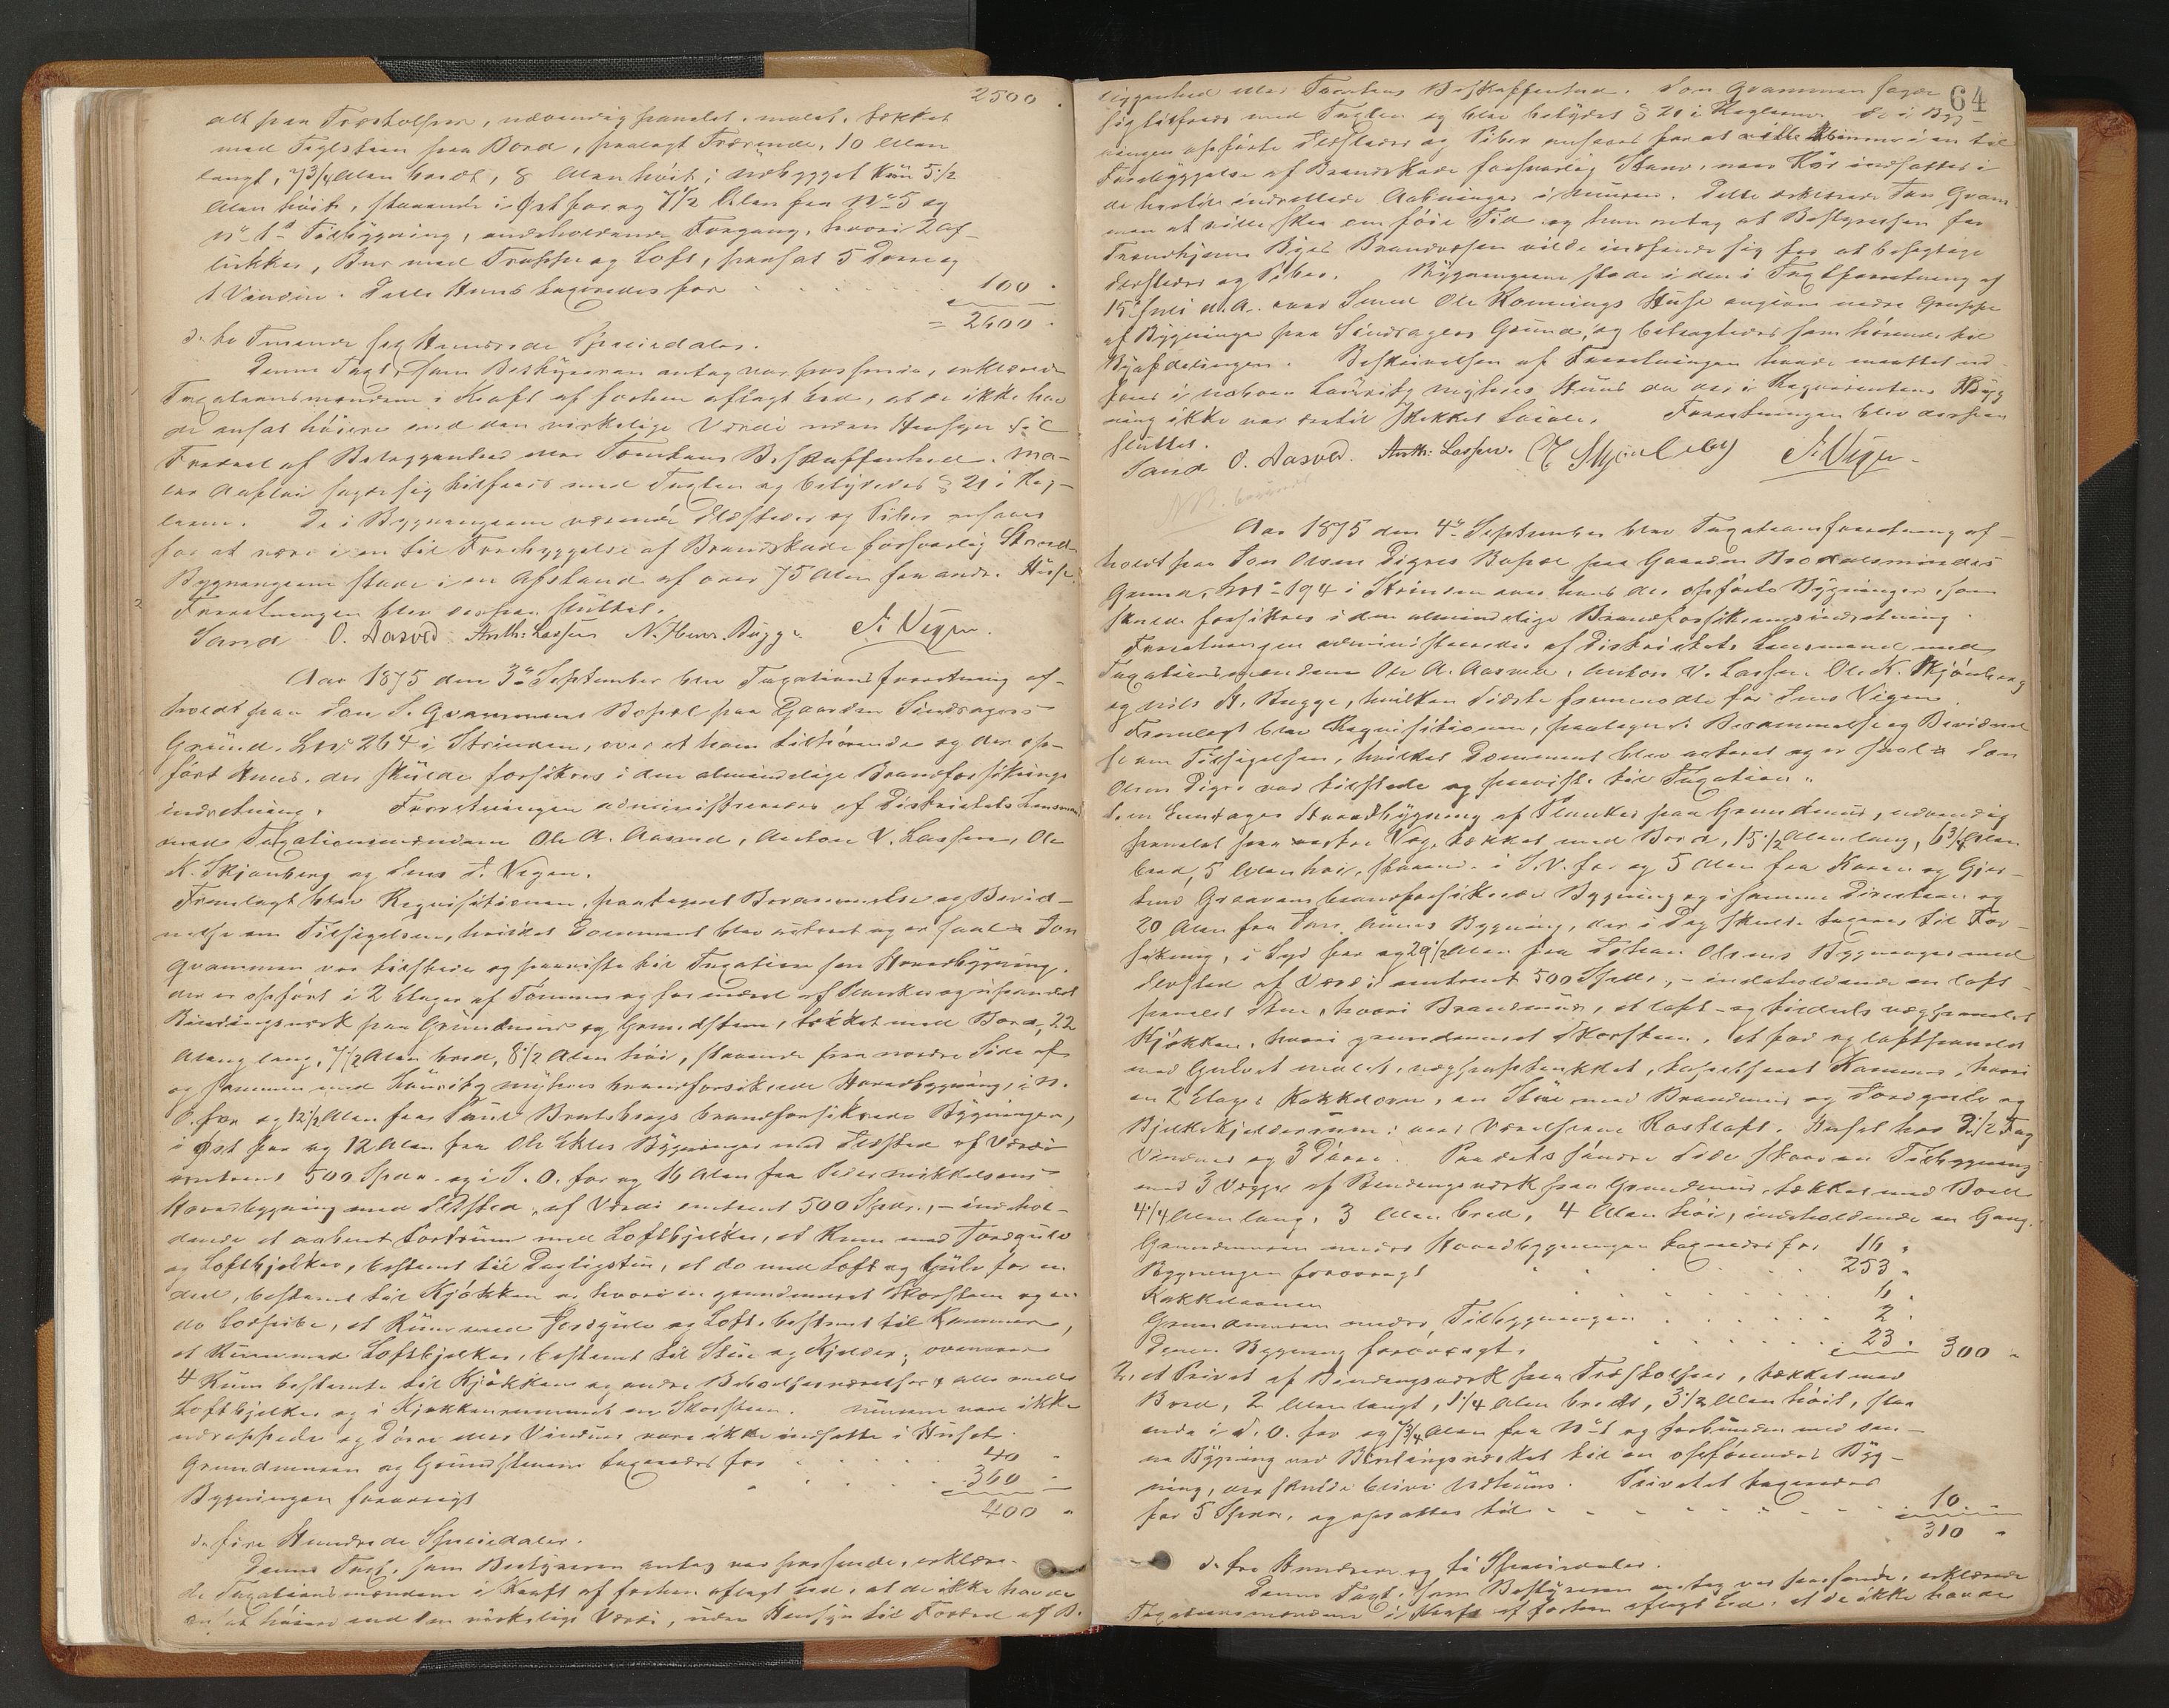 2500 .
alt paa Træstolper, udvendig panelet, malet, tækket
med Teglsteen paa Bord, paalagt Trærende, 10 Alen
langt, 7 3/4 Alen bredt, 8 Alen høit, udbygget kun 5 1/2
Alen høit, staaende i Øst for og 7 1/2 Alen fra No 5 og
No 1s Tilbygning, indeholdende Forgang, hvori 2 af-
lukker, Bur med Trappe og Loft, paasat 5 Døre og
1 Vindue. Dette Huus taxeredes for 100 .
= 2600 .
d. to Tusende sex Hundrede Speciedaler.
Denne Taxt, som Bestyreren antog var passende, erklærede
Taxationsmændene i Kraft af forhen aflagt Eed, at de ikke hav-
de ansat høiere end den virkelige Værdi uden Hensyn til
Fordeel af Beliggenhed eller Tomtens Beskaffenhed. Ma-
ler sagde sig tilfreds med Taxten og betydedes § 21 i Reg-
lerne. De i Bygningerne værende Ildsteder og Piber ansaaes
for at være i en til Forebyggelse af Brandskade forsvarlig Stand.
Bygningerne staae i en Afstand af over 75 Alen fra andre Huse.
Forretningen blev derpaa sluttet.
Sand O. Aasved Anth: Lassen N. Henr. Bugge J. Vigen.
Aar 1875 den 3die September blev Taxationsforretning af-
holdt paa Jon S. Gvammens Bopæl paa Gaarden Sindsagers
Grund, Lno 264 i Strinden, over et ham tilhørende og der op-
ført Huus, der skulde forsikres i den almindelige Brandforsikrings
indretning. Forretningen administreredes af Distriktets Lensmand
med Taxationsmændene Ole A. Aasved, Anton V. Lassen, Ole
K. Skjønberg og Jens J. Vigen.
Fremlagt blev Requisitionen, paategnet Berammelse og Bevid-
nelse om Tilsigelsen, hvilket Document blev acteret og er saal: Jon
Gvammen var tilstede og paaviste til Taxation en Hovedbygning,
der er opført i 2 Etager af Tømmer og for endeel af Planker og upanelet
Bindingsværk paa Grundmuur og Grundsteen, tækket med Bord, 22
Alen lang, 7 1/2 Alen bred, 8 1/2 Alen høi, staaende paa nordre Side af
og sammen med Lauritz Myhrers brandforsikrede Hovedbygning, i N.
O. for og 12 1/2 Alen fra Paul Bratsbergs brandforsikrede Bygninger,
i Øst for og 12 Alen fra Ole Ekles Bygninger med Ildsted af Værdi
omtrent 500 Spdr. og i S. O. for og 16 Alen fra Peder Mikkelsens
Hovedbygning med Ildsted, af Værdi omtrent 500 Spdr., – indehol-
dende et aabent Forrum med Loftbjelker, et Rum med Jordgulv
og Loftbjelker, bestemt til Dagligstue, et do med Loft og Gulv for en
deel, bestemt til Kjøkken og hvori en grundmuret Skorsteen og en
do Lodpibe, et Rum med Jordgulv og Loft, bestemt til Kammer,
et Rum med Loftbjelker, bestemt til Stue og Kjelder; ovenover
4 Rum bestemte til Kjøkken og andre Beboelsesværelser, alle med
Loftbjelker og i Kjøkkenrummet en Skorsteen. Murene vare ikke
udrappede og Døre eller Vinduer vare ikke indsatte i Huset.
Grundmuren og Grundstenene taxeredes for 40 .
Bygningen forøvrigt 360 .
400 .
d. fire Hundrede Speciedaler.
Denne Taxt, som Bestyreren antog var passende, erklære-
de Taxationsmændene i Kraft af forhen aflagt Eed, at de ikke havde
ansat høiere end den virkelige Værdi, uden Hensyn til Fordeel af B.
64
liggenhed eller Tomtens Beskaffenhed. Jon Gvammen sagde
sig tilfreds med Taxten og blev betydet § 21 i Reglerne. De i Byg-
ningen opførte Ildsteder og Piber ansaaes for at ville komme i en til
Forebyggelse af Brandskade forsvarlig Stand, naar Rør indsattes i
de hertil indrettede Aabninger i Muren. Dette erklærede Jon Gvam-
men at ville skee om føie Tid og han antog at Bestyrelsen for
Trondhjems Byes Brandvæsen vilde indfinde sig for at besigtige
Ildsteder og Piber. Bygningerne staae i den i Taxtforretning af
15de Juli d. A. over Smed Ole Rønnings Huse angivne nedre Gruppe
af Bygninger paa Sindsagers Grund, og betragtedes som hørende til
Byafdelingen. Beskrivelsen af Forretningen havde maattet ud-
føres i naboen Lauritz Myhrers Huus da der i Requirentens Byg-
ning ikke var dertil skikket Locale. Forretningen blev derpaa
sluttet.
Sand O. Aasved. Anth: Lassen. O K Skjønberg J. Vigen.
NB.
Aar 1875 den 4de September blev Taxationsforretning af-
holdt paa Jon Olsen Digres Bopæl paa Gaarden Brodalsmindes
Grund, Lno 194 i Strinden over hans der opførte Bygninger, som
skulde forsikres i den almindelige Brandforsikringsindretning.
Forretningen administreredes af Distriktets Lensmand med
Taxationsmændene Ole A. Aasved, Anton V. Lassen, Ole K. Skjønberg
og Nils H. Bugge, hvilken sidste fremmødte for Jens Vigen.
Fremlagt blev Requisitionen, paategnet Berammelse og Bevidnel-
se om Tilsigelsen, hvilket Document blev acteret og er saal: Jon
Olsen Digre var tilstede og paaviste til Taxation:
1, en Eenetages Hovedbygning af Planker paa Grundmuur, udvendig
panelet paa vestre Væg, tækket med Bord, 15 1/2 Alen lang, 6 3/4 Alen
bred, 5 Alen høi, staaende i S. V. for og 5 Alen fra Karen og Gjer-
trud Graavens brandforsikrede Bygning og i samme Direction og
20 Alen fra Bygning, der i Dag skulde taxeres til For-
sikring, i Syd for og 29 1/2 Alen fra Johan Olsens Bygninger med
Ildsted af Værdi omtrent 500 Spdlr., – indeholdende en loft-
panelet Stue, hvori Brandmuur, et loft- og tildeels vægpanelet
Kjøkken, hvori grundmuret Skorsteen, et for og loftpanelet
med Gulvet malet, vægpaptrukket, tapetseret Kammer, hvori
en 2 Etages Kakkelovn, en Stue med Brandmuur og Jordgulv og
Bjelkekjelderrum; over Værelserne Røstloft. Huset har 2 1/2 Fag
Vinduer og 3 Døre. Paa dets søndre Side staar en Tilbygning
med 3 Vægge af Bindingsværk paa Grundmuur, tækket med Bord
4 1/4 Alen lang, 3 Alen bred, 4 Alen høi, indeholdende en Gang.
Grundmuren under Hovedbygningen taxeredes for 16 .
Bygningen forøvrigt 253 .
Kakkelovnen 6 .
Grundmuren under Tilbygningen 2 .
Denne Bygning forøvrigt 23 . 300 .
2, et Privet af Bindingsværk paa Træstolper, tækket med
Bord, 2 Alen langt, 1 1/4 Alen bredt, 3 1/2 Alen høit, staa-
ende i S. O. for og 7 3/4 Alen fra No 1 og forbunden med den-
ne Bygning ved Bindingsværket til en opførendes Byg-
ning, der skulde blive Udhuus. Privetet taxeredes
for 5 Spdr., og opsattes til 10 .
310 .
d. tre Hundrede og ti Speciedaler.
Denne Taxt, som Bestyreren antog var passende, erklærede
Taxationsmændene i Kraft af forhen aflagt Eed, at de ikke havde